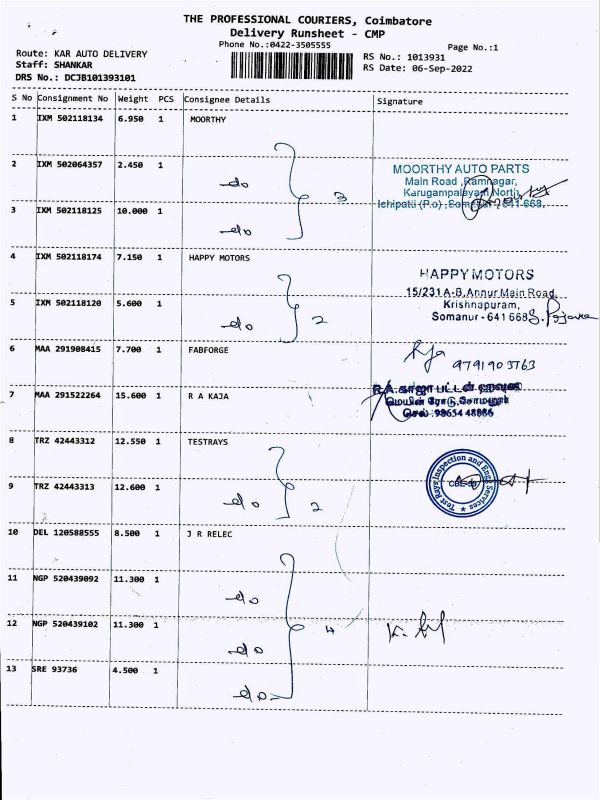 THE PROFESSIONAL COURIERS, Coimbatore
Delivery Runsheet - CMP
Phone No.:0422-3505555
Page No.:1
Route: KAR AUTO DELIVERY
Staff: SHANKAR
DRS No.: DCJB101393101
RS No.: 1013931
RS Date: 06-Sep-2022
S No Consignment No Weight PCS Consignee Details Signature
1 IXM 502118134 6.950 1 MOORTHY
2 IXM 502064357 2.450 1 do
3
MOORTHY AUTO PARTS
Main Road ,Ramnagar,
Karugampalayam North,
Ichipatti (P.o) ,Somanur - 641 668.
3 IXM 502118125 10.000 1 do
4 IXM 502118174 7.150 1 HAPPY MOTORS
HAPPY MOTORS
15/231 A-B, Annur Main Road,
Krishnapuram,
Somanur - 641 668
5 IXM 502118120 5.600 1 do 2
6 MAA 291908415 7.700 1 FABFORGE
Raja
9791903763
7 MAA 291522264 15.600 1 R A KAJA
மெயின் ரோடு, சோமனூர்
செல் : 98654 48886
8 TRZ 42443312 12.550 1 TESTRAYS
Test Rays Inspection and Engg Services
9 TRZ 42443313 12.600 1 do 2
10 DEL 120588555 8.500 1 J R RELEC
11 NGP 520439092 11.300 1 do
12 NGP 520439102 11.300 1 do 4
13 SRE 93736 4.500 1 do